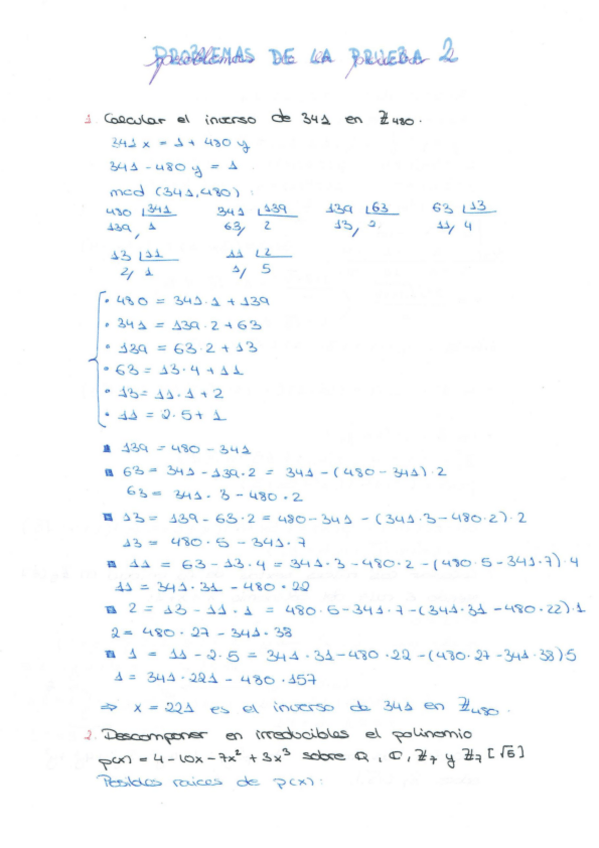 PROBLEMAS DE LA PRUEBA 2
1. Calcular el inverso de 341 en ℤ480.
341x = 1 + 480y
341 - 480y = 1
mcd (341, 480):
480 |341 341 |139 139 |63 63 |13
139, 1 63, 2 13, 2 11, 4
13 |11 11 |2
2, 1 1, 5
• 480 = 341·1 + 139
• 341 = 139·2 + 63
• 139 = 63·2 + 13
• 63 = 13·4 + 11
• 13 = 11·1 + 2
• 11 = 2·5 + 1
▪ 139 = 480 - 341
▪ 63 = 341 - 139·2 = 341 - (480 - 341)·2
63 = 341·3 - 480·2
▪ 13 = 139 - 63·2 = 480 - 341 - (341·3 - 480·2)·2
13 = 480·5 - 341·7
▪ 11 = 63 - 13·4 = 341·3 - 480·2 - (480·5 - 341·7)·4
11 = 341·31 - 480·22
▪ 2 = 13 - 11·1 = 480·5 - 341·7 - (341·31 - 480·22)·1
2 = 480·27 - 341·38
▪ 1 = 11 - 2·5 = 341·31 - 480·22 - (480·27 - 341·38)5
1 = 341·221 - 480·157
⇒ x = 221 es el inverso de 341 en ℤ480.
2. Descomponer en irreducibles el polinomio
p(x) = 4 - 10x - 7x² + 3x³ sobre ℚ, ℂ, ℤ7 y ℤ7[√5]
Posibles raices de p(x):